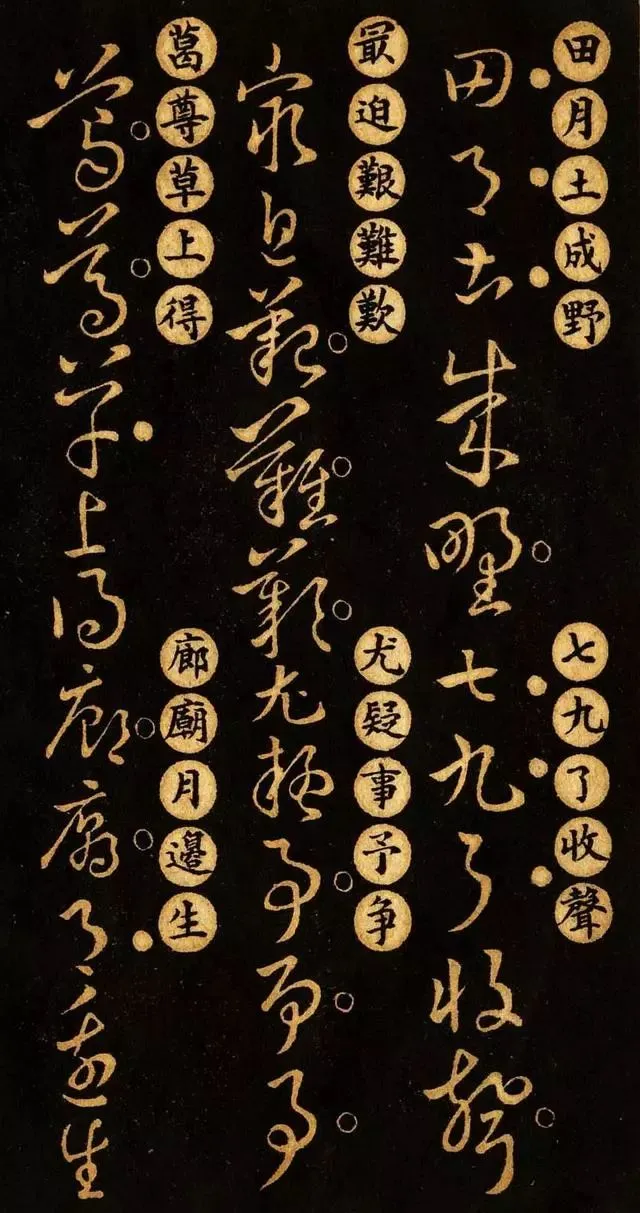 田月土成野
七九了收聲
田月土成野七九了收聲
最迫艱難歎
尤疑事予争
最迫艱難歎尤疑事予争
葛尊草上得
廊廟月邊生
葛尊草上得廊廟月邊生